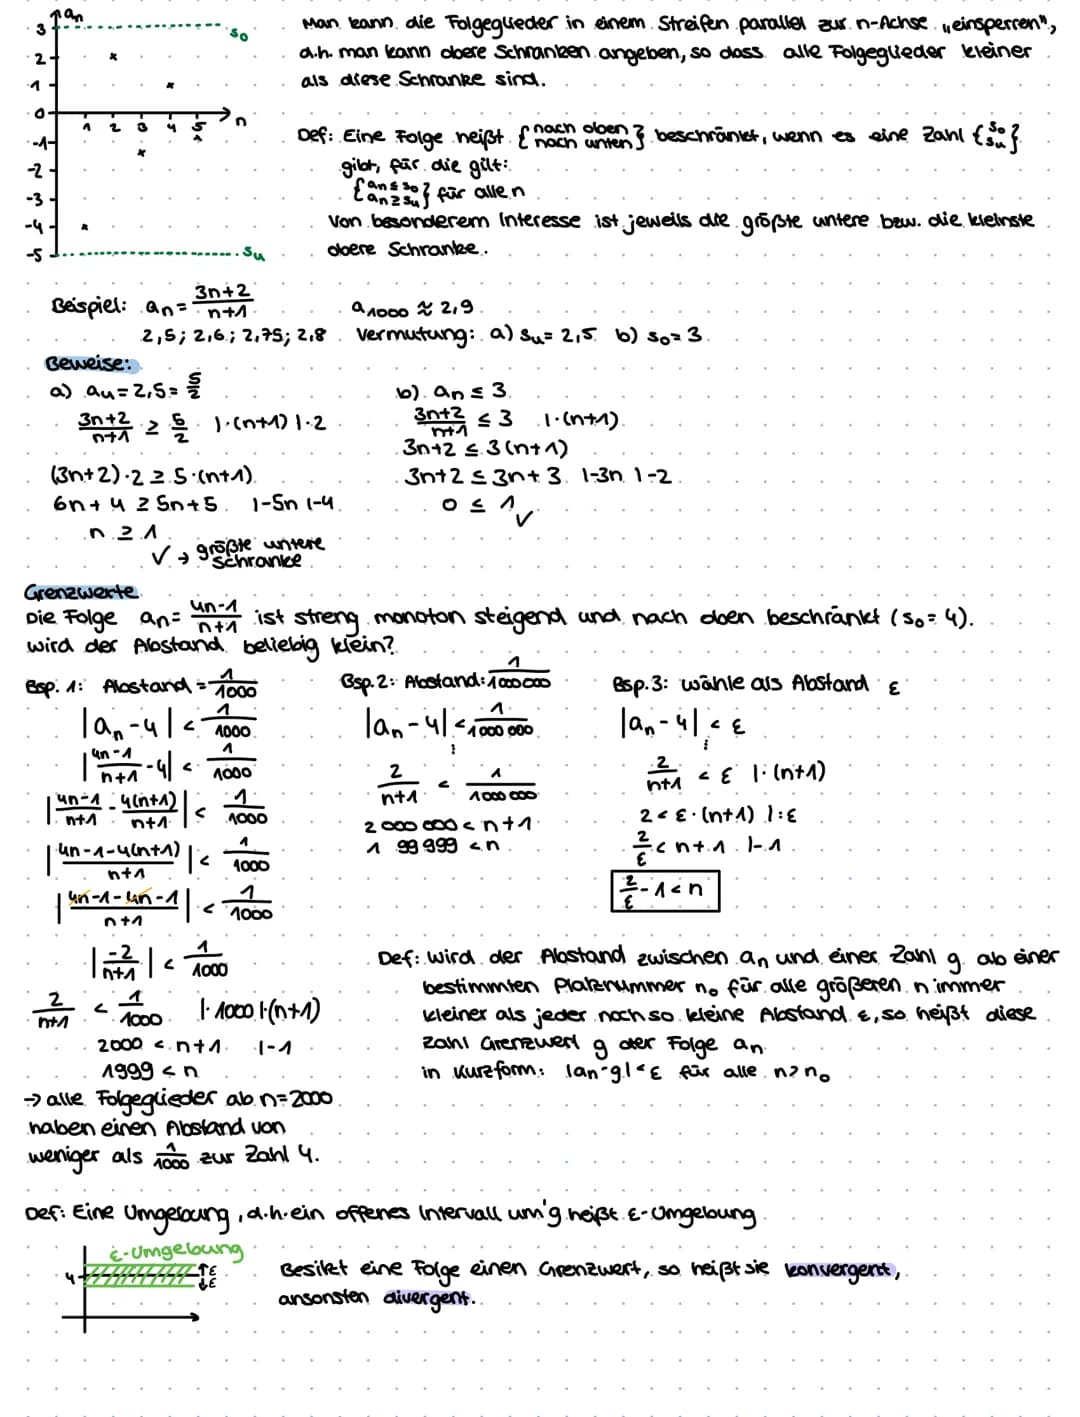 an
3
2
1
0
-1
-2
-3
-4
-5
1 2 3 4 5 n
so
su
Man kann die Folgeglieder in einem Streifen parallel zur n-Achse „einsperren“,
d.h. man kann obere Schranken angeben, so dass alle Folgeglieder kleiner
als diese Schranke sind.
Def: Eine Folge heißt {nach oben / nach unten} beschränkt, wenn es eine Zahl {so / su}
gibt, für die gilt:
{an ≤ so / an ≥ su} für alle n
Von besonderem Interesse ist jeweils die größte untere bzw. die kleinste
obere Schranke.
Beispiel: an = (3n+2)/(n+1) a1000 ≈ 2,9
2,5; 2,6; 2,75; 2,8 Vermutung: a) su = 2,5 b) so = 3
Beweise:
a) au = 2,5 = 5/2
(3n+2)/(n+1) ≥ 5/2 |·(n+1) |·2
(3n+2)·2 ≥ 5·(n+1)
6n+4 ≥ 5n+5 |-5n |-4
n ≥ 1
✓ → größte untere
Schranke
b) an ≤ 3
(3n+2)/(n+1) ≤ 3 |·(n+1)
3n+2 ≤ 3(n+1)
3n+2 ≤ 3n+3 |-3n |-2
0 ≤ 1 ✓
Grenzwerte
Die Folge an = (4n-1)/(n+1) ist streng monoton steigend und nach oben beschränkt (so = 4).
wird der Abstand beliebig klein?
Bsp. 1: Abstand = 1/1000
|an - 4| < 1/1000
|(4n-1)/(n+1) - 4| < 1/1000
|(4n-1)/(n+1) - 4(n+1)/(n+1)| < 1/1000
|(4n-1-4(n+1))/(n+1)| < 1/1000
|(4n-1-4n-1)/(n+1)| < 1/1000
|-2/(n+1)| < 1/1000
2/(n+1) < 1/1000 |·1000 |·(n+1)
2000 < n+1 |-1
1999 < n
→ alle Folgeglieder ab n=2000
haben einen Abstand von
weniger als 1/1000 zur Zahl 4.
Bsp. 2: Abstand: 1/1000000
|an - 4| < 1/1000 000
⋮
2/(n+1) < 1/1000 000
2 000 000 < n+1
1 99 999 < n
Bsp. 3: wähle als Abstand ε
|an - 4| < ε
⋮
2/(n+1) < ε |·(n+1)
2 < ε·(n+1) |:ε
2/ε < n+1 |-1
2/ε - 1 < n
Def: Wird der Abstand zwischen an und einer Zahl g ab einer
bestimmten Platznummer no für alle größeren n immer
kleiner als jeder noch so kleine Abstand ε, so heißt diese
Zahl Grenzwert g der Folge an
in Kurzform: |an - g| < ε für alle n > no
Def: Eine Umgebung, d.h. ein offenes Intervall um g heißt ε-Umgebung
ε-Umgebung
4
ε
ε
Besitzt eine Folge einen Grenzwert, so heißt sie konvergent,
ansonsten divergent.